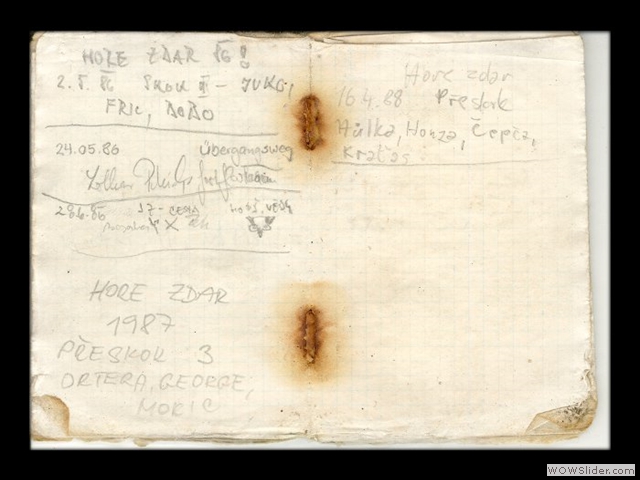 HORE ZDAR 86!
2.5.86 SKOK III - JUKO,
FRIC, BOBO
24.05.86 Übergangsweg
Lothar
28.6.86 17 - CESTA
HORE ZDAR
1987
PŘESKOK 3
ORTERA, GEORGE,
MOKIC
Hore zdar
16.4.88 Přeskok
Hůlka, Honza, Čepča,
Kraťas
WOWSlider.com